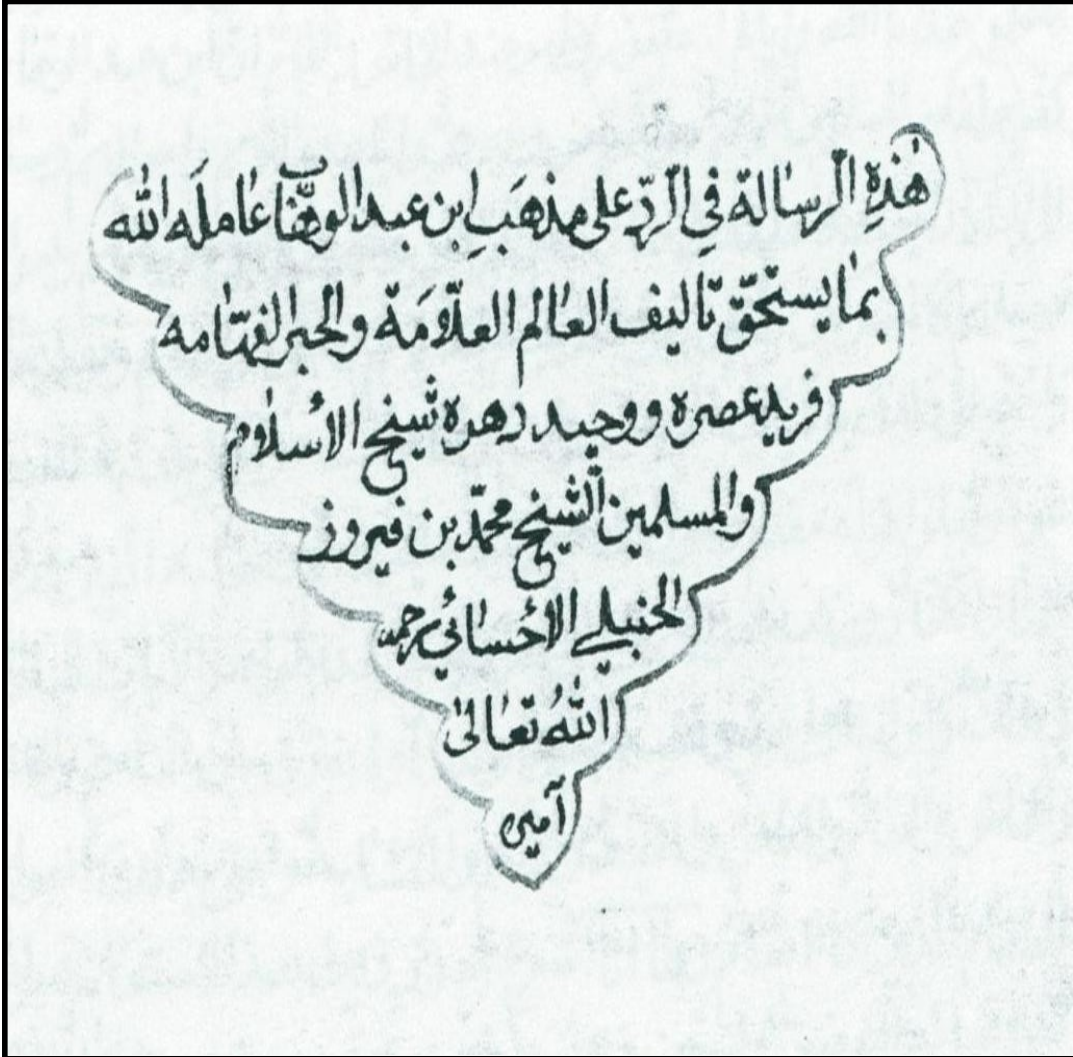 هٰذِهِ الرسالة فِي الرّد على مذهَبِ ابن عبد الوهّاب عاملَه الله
بما يستحقّ تاليف العالم العلّامَة والحبر الفهّامه
فريد عصره ووحيد دهره شيخ الأسلام
والمسلمين الشيخ محمّد بن فيروز
الحنبلي الأحسائي رحمه
اللهُ تعالىٰ
آمين